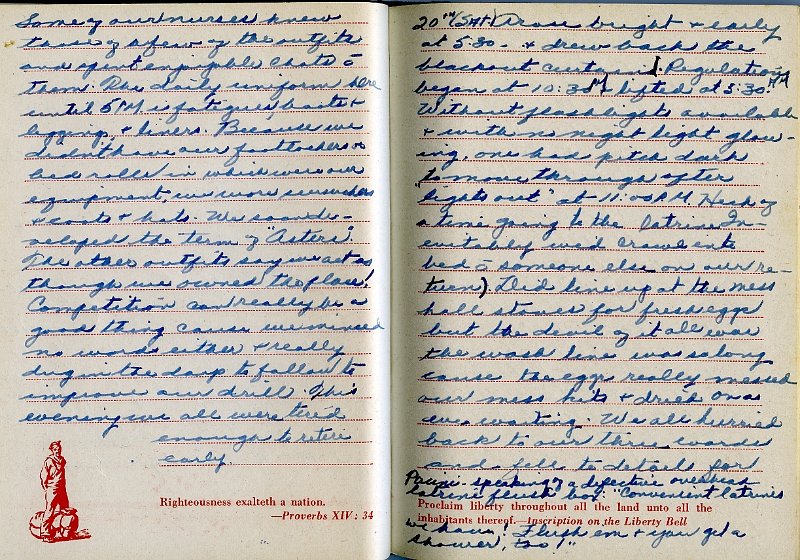 Some of our nurses knew
those of a few of the outfits
and spent enjoyable chats c̄
them. The daily uniform here
until 5 PM is fatigues, boots &
leggings, & liners. Because we
didn't have our footlockers or
bed rolls in which were our
equipment, we wore
& coats & hats. We soon de-
veloped the term of "Asters".
The other outfits say we act as
though we owned the place!
Competition can really be a
good thing cause we minced
no words either & really
dug in the days to follow to
improve our drill. This
evening we all were tired
enough to retire
early.
Righteousness exalteth a nation.
—Proverbs XIV: 34
20TH (SAT) Arose bright & early
at 5:30 & drew back the
blackout curtains. Regulations
began at 10:30 PM & lifted at 5:30 AM
Without flash lights available
& with no night light glow-
ing, one had pitch dark
to move through after
"lights out" at 11:00 P.M. Heck of
a time going to the latrine. In-
evitably we'd crawl into
bed c̄ someone else on our re-
turn) Did line up at the mess
hall stoves for fresh eggs
but the devil of it all was
the wash line was so long
cause the eggs really messed
our mess kits & dried on as
we waiting. We all hurried
back to our three wards
and fell to details for
speaking of a defective overhead
latrine flush box: "Convenient latrines
Proclaim liberty throughout all the land unto all the
inhabitants thereof.—Inscription on the Liberty Bell
we have! Flush em & you get a
shower, too!"